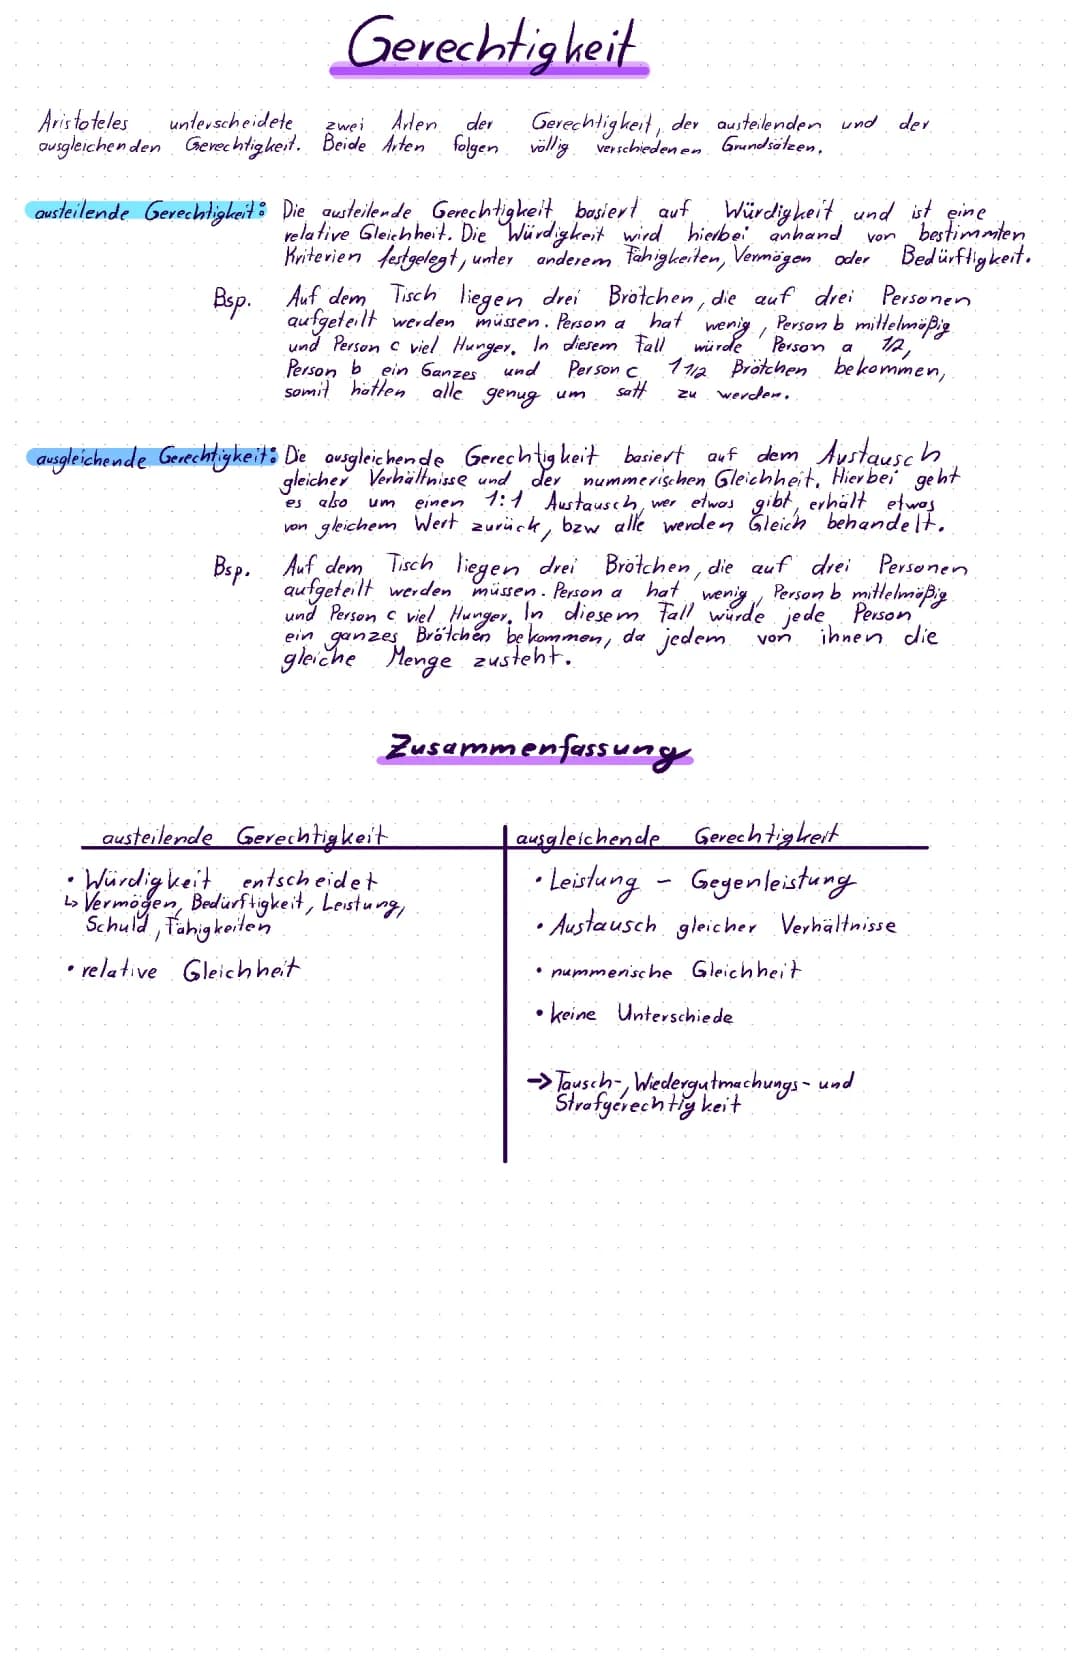 Gerechtigkeit
Aristoteles unterscheidete zwei Arten der Gerechtigkeit, der austeilenden und der
ausgleichenden Gerechtigkeit. Beide Arten folgen völlig verschiedenen Grundsätzen.
austeilende Gerechtigkeit: Die austeilende Gerechtigkeit basiert auf Würdigkeit und ist eine
relative Gleichheit. Die Würdigkeit wird hierbei anhand von bestimmten
Kriterien festgelegt, unter anderem Fähigkeiten, Vermögen oder Bedürftigkeit.
Bsp. Auf dem Tisch liegen drei Brötchen, die auf drei Personen
aufgeteilt werden müssen. Person a hat wenig, Person b mittelmäßig
und Person c viel Hunger. In diesem Fall würde Person a 1/2,
Person b ein Ganzes und Person c 1 1/2 Brötchen bekommen,
somit hätten alle genug um satt zu werden.
ausgleichende Gerechtigkeit: De ausgleichende Gerechtigkeit basiert auf dem Austausch
gleicher Verhältnisse und der nummerischen Gleichheit. Hierbei geht
es also um einen 1:1 Austausch, wer etwas gibt, erhält etwas
von gleichem Wert zurück, bzw alle werden Gleich behandelt.
Bsp. Auf dem Tisch liegen drei Brötchen, die auf drei Personen
aufgeteilt werden müssen. Person a hat wenig, Person b mittelmäßig
und Person c viel Hunger. In diesem Fall würde jede Person
ein ganzes Brötchen bekommen, da jedem von ihnen die
gleiche Menge zusteht.
Zusammenfassung
austeilende Gerechtigkeit
• Würdigkeit entscheidet
↳ Vermögen, Bedürftigkeit, Leistung,
Schuld, Fähigkeiten
• relative Gleichheit
ausgleichende Gerechtigkeit
• Leistung – Gegenleistung
• Austausch gleicher Verhältnisse
• nummerische Gleichheit
• keine Unterschiede
→ Tausch-, Wiedergutmachungs- und
Strafgerechtigkeit